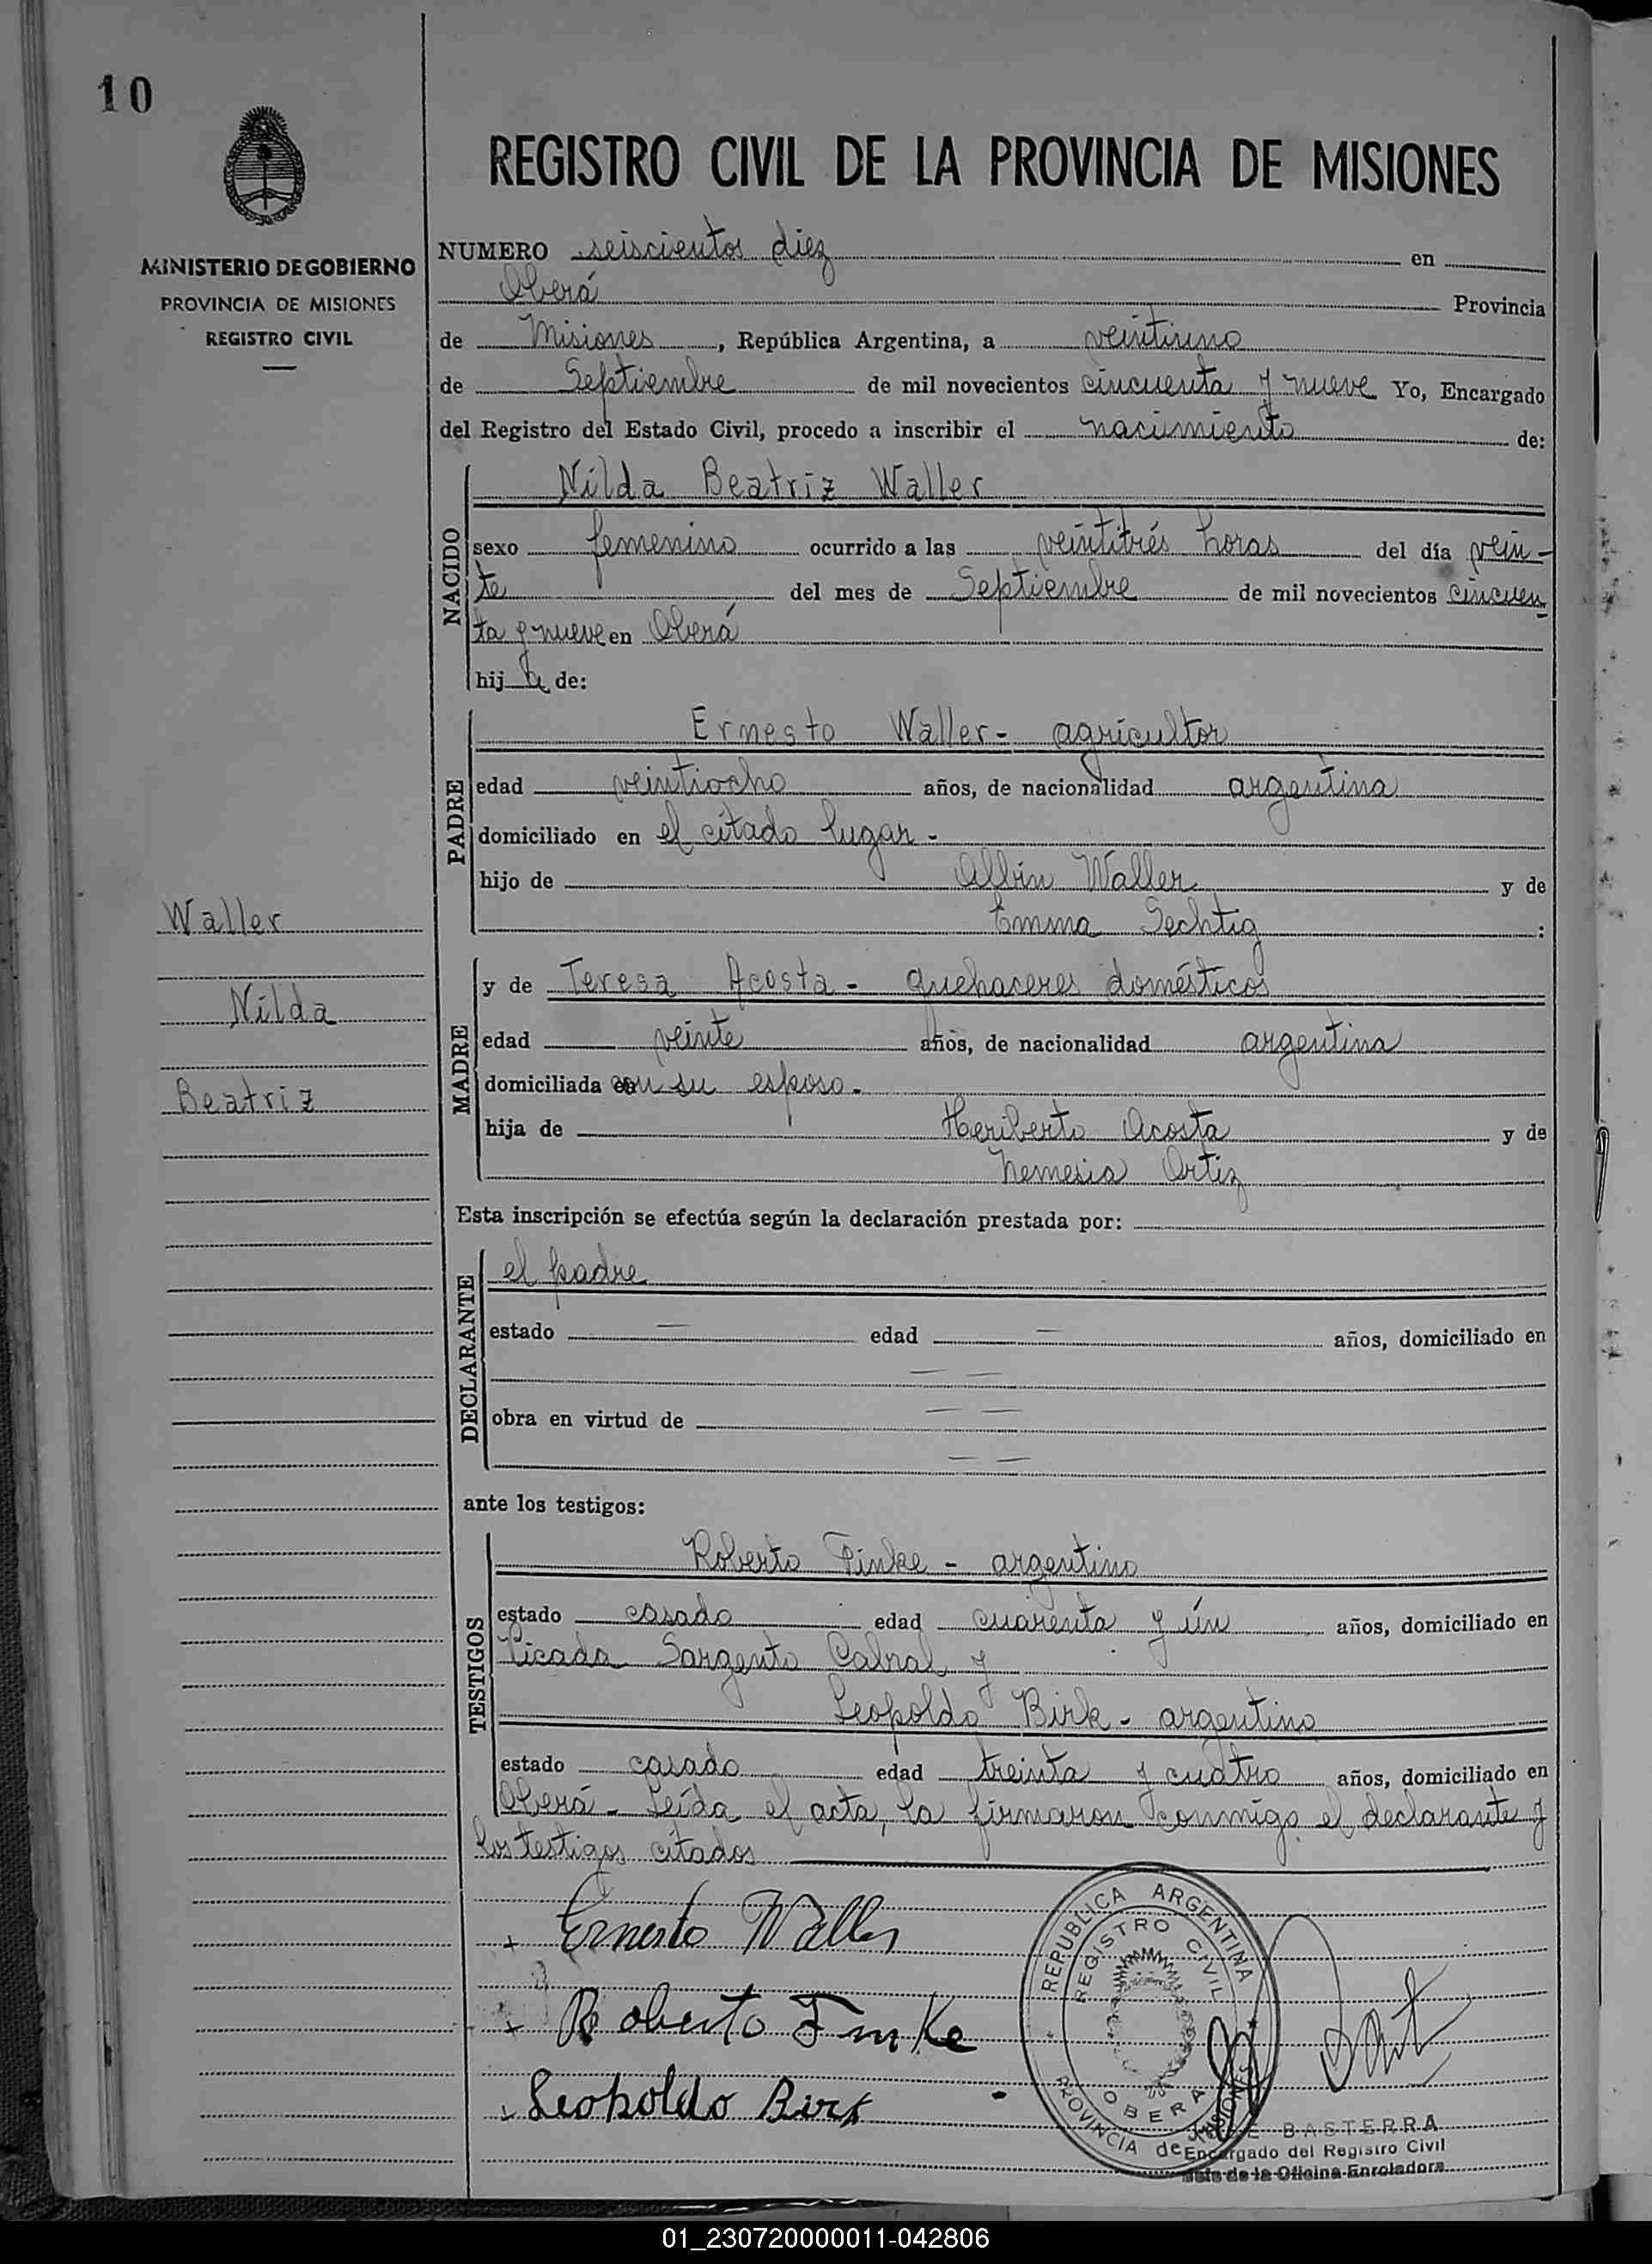 10
MINISTERIO DE GOBIERNO
PROVINCIA DE MISIONES
REGISTRO CIVIL
Waller
Nilda
Beatriz
REGISTRO CIVIL DE LA PROVINCIA DE MISIONES
NUMERO seiscientos diez en
Oberá Provincia
de Misiones, República Argentina, a veintiuno
de Septiembre de mil novecientos cincuenta y nueve Yo, Encargado
del Registro del Estado Civil, procedo a inscribir el nacimiento de:
NACIDO
Nilda Beatriz Waller
sexo femenino ocurrido a las veintitrés horas del día vein-
te del mes de Septiembre de mil novecientos cincuen
ta y nueve en Oberá
hij a de:
PADRE
Ernesto Waller - agricultor
edad veintiocho años, de nacionalidad argentina
domiciliado en el citado lugar -
hijo de Albin Waller y de
Emma Sechtig :
MADRE
y de Teresa Acosta - quehaceres domésticos
edad veinte años, de nacionalidad argentina
domiciliada con su esposo -
hija de Heriberto Acosta y de
Nemesia Ortiz
Esta inscripción se efectúa según la declaración prestada por:
DECLARANTE
el padre
estado — edad — años, domiciliado en
— —
obra en virtud de — —
— —
ante los testigos:
TESTIGOS
Roberto Finke - argentino
estado casado edad cuarenta y ún años, domiciliado en
Picada Sargento Cabral y
Leopoldo Birk - argentino
estado casado edad treinta y cuatro años, domiciliado en
Oberá - Leída el acta, la firmaron conmigo el declarante y
los testigos citados
+ Ernesto Waller
+ Roberto Finke
+ Leopoldo Birk
REPUBLICA ARGENTINA
REGISTRO CIVIL
OBERA
PROVINCIA de MISIONES
BASTERRA
Encargado del Registro Civil
Jefe de la Oficina Enroladora
01_230720000011-042806